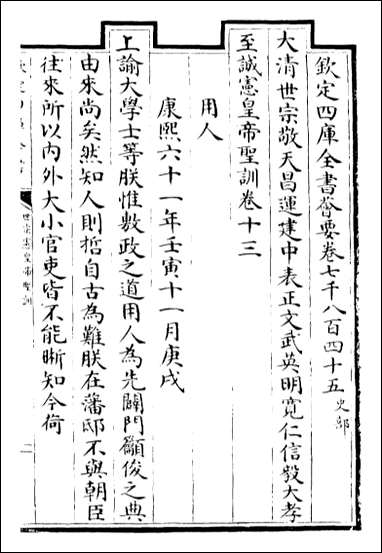 欽定四庫全書薈要卷七千八百四十五 史部
大清世宗敬天昌運建中表正文武英明寬仁信毅大孝
至誠憲皇帝聖訓卷十三
用人
康熙六十一年壬寅十一月庚戌
上諭大學士等朕惟敷政之道用人為先闢門籲俊之典
由來尚矣然知人則哲自古為難朕在藩邸不與朝臣
往來所以内外大小官吏皆不能晰知今荷
世宗憲皇帝聖訓